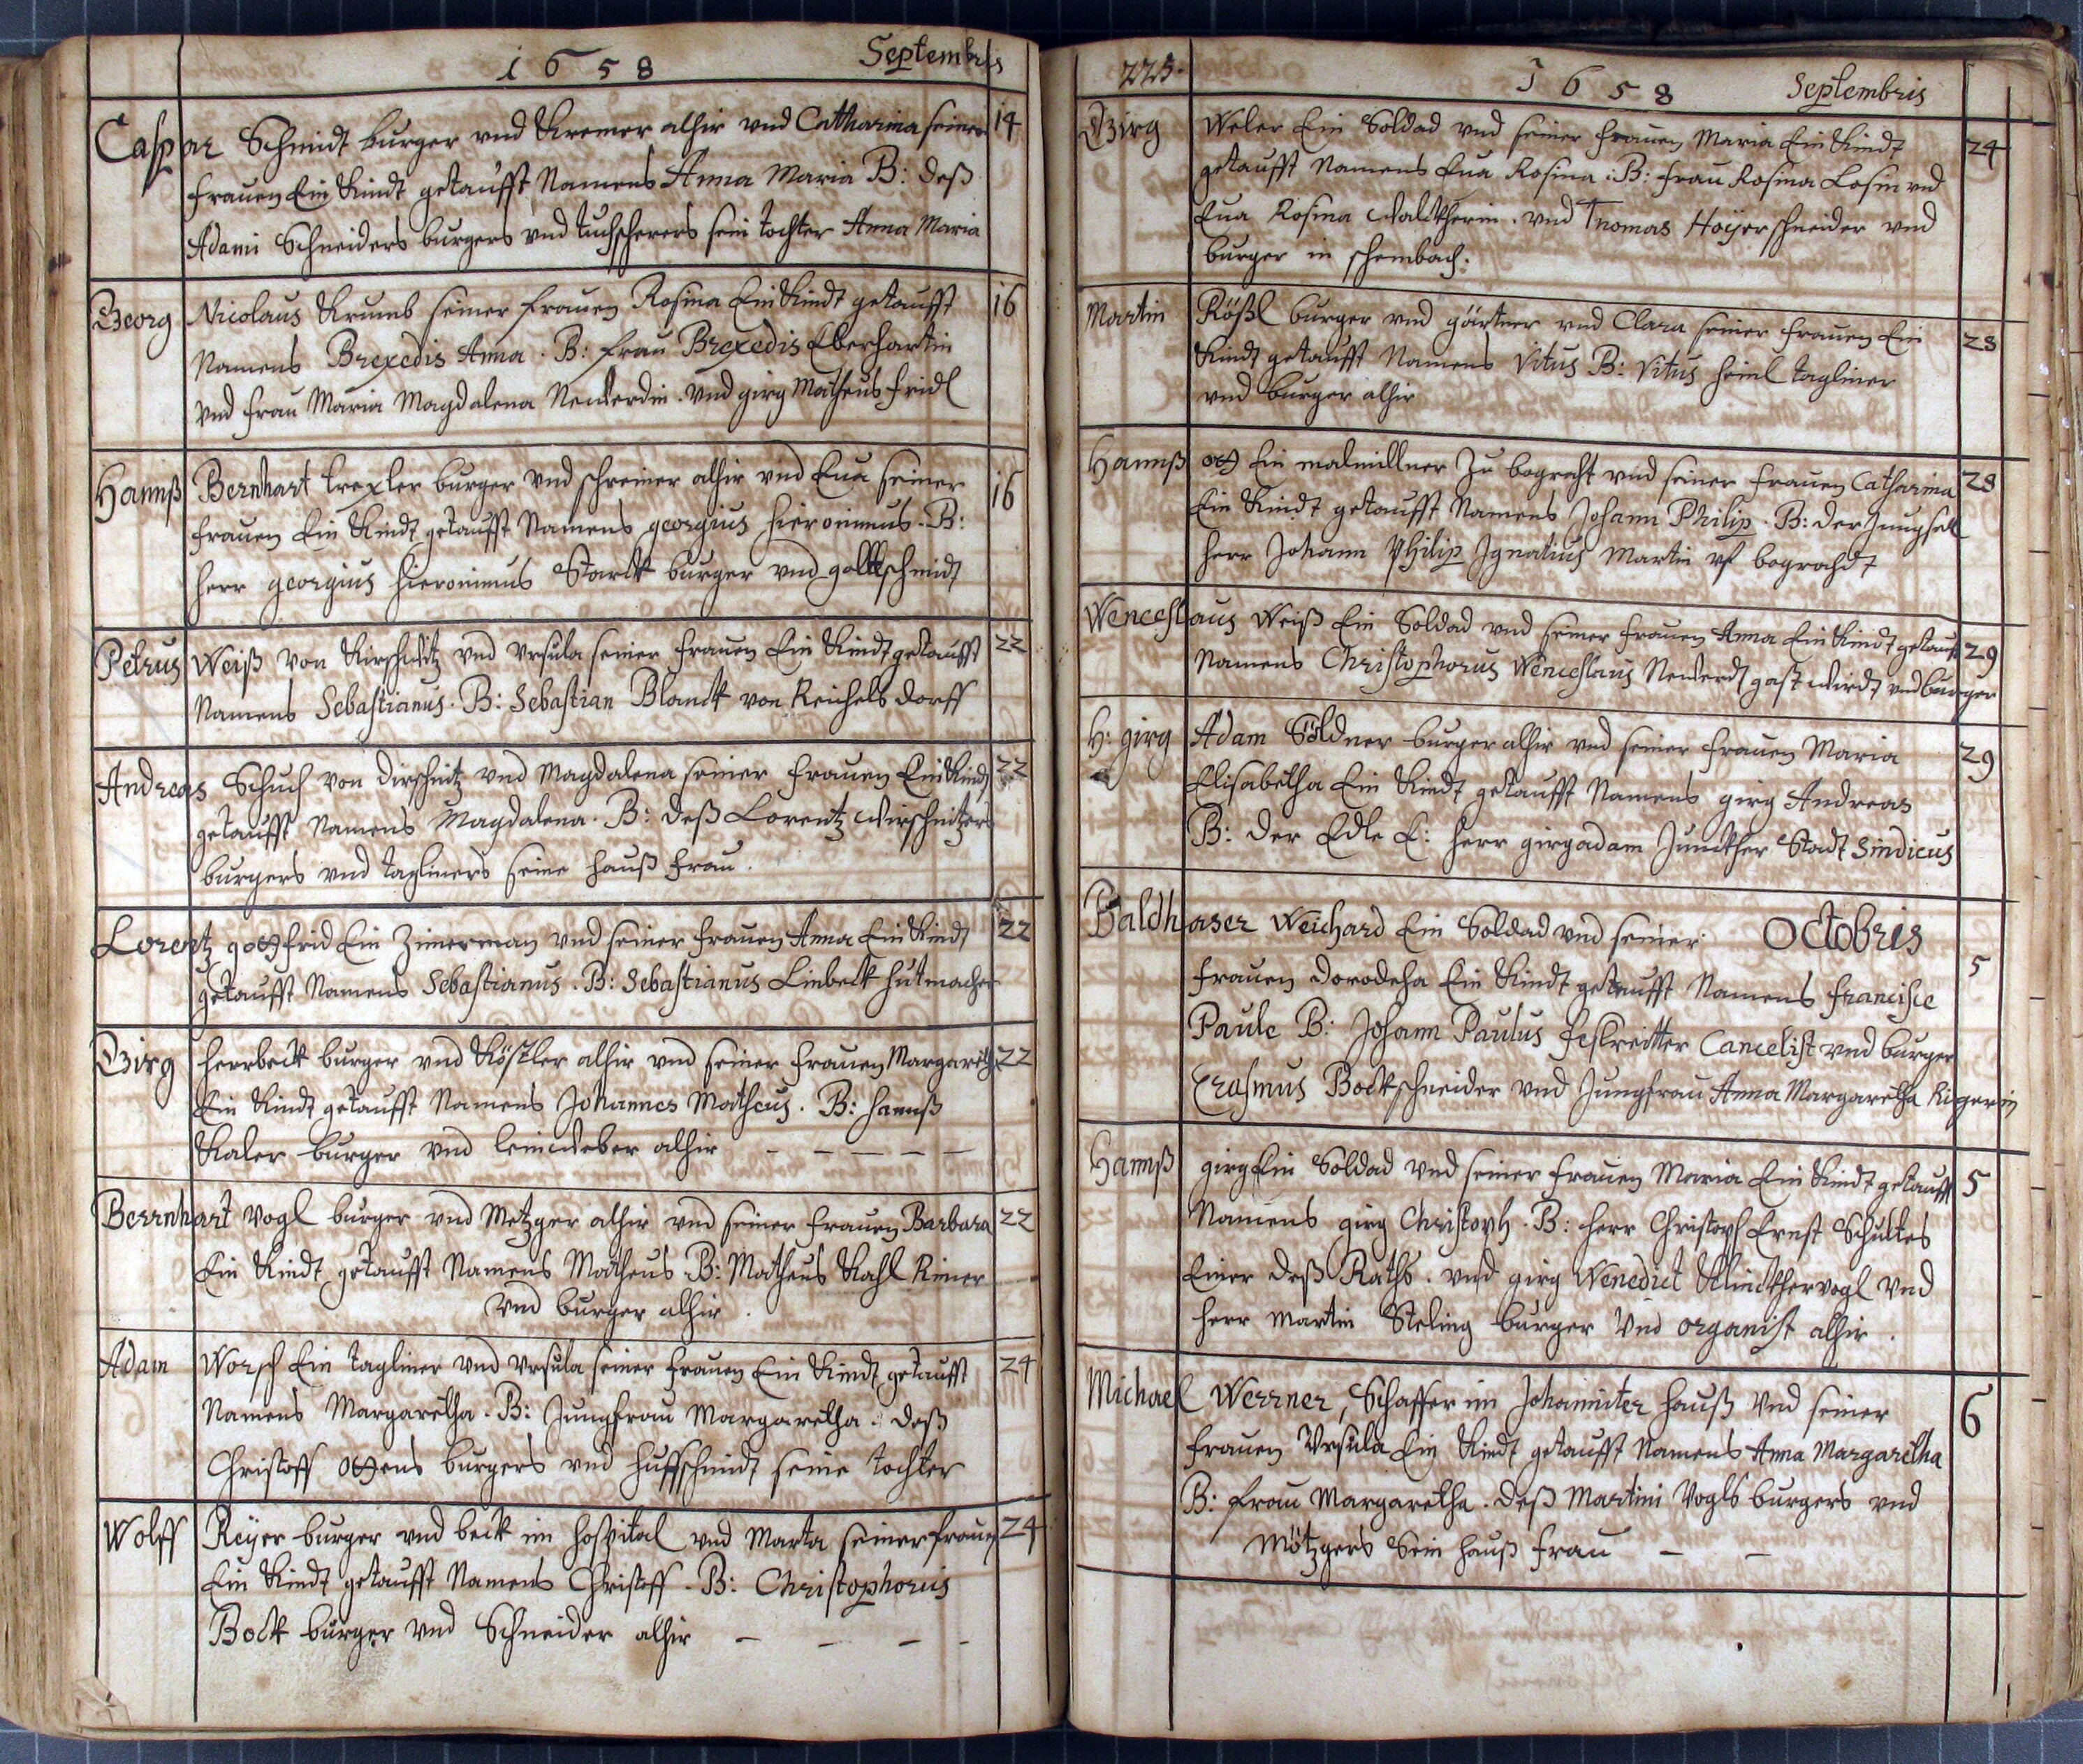 1658 Septembris
Caspar Schmidt burger vnd Kremer alhir vnd Catharina seiner 14
frauen Ein Kindt getaufft Namens Anna Maria B: deß
Adami Schneiders burgers vnd tuchscherers sein tochter Anna Maria
Georg Nicolaus Krumb seiner frauen Rosina Ein Kindt getaufft 16
Namens Brexedis Anna. B: frau Brexedis Eberhartin
vnd frau Maria Magdalena Newerdin. vnd girg Matheus fridl
Hannß Bernhart trexler burger vnd schreiner alhir vnd Eua seiner 16
frauen Ein Kindt getaufft Namens georgius hieronimus. B:
herr georgius hieronimus Starck burger vnd goltschmidt
Petrus Weiß von Kirschwitz vnd Vrsula seiner frauen Ein Kindt getaufft 22
Namens Sebastianus. B: Sebastian Blanck von Reichels dorff
Andreas Schuch von dirschnitz vnd Magdalena seiner frauen Ein Kindt 22
getaufft Namens Magdalena. B: deß Lorentz wirschnitzers
burgers vnd tagliners seine hauß frau.
Lorentz gottfrid Ein Zimerman vnd seiner frauen Anna Ein Kindt 22
getaufft Namens Sebastianus. B: Sebastianus Linbeck hutmacher
Girg herrbeck burger vnd Köstler alhir vnd seiner frauen Margareth 22
Ein Kindt getaufft Namens Johannes Matheus. B: hannß
Kaler burger vnd leinweber alhir – – – – –
Berrnhart Vogl burger vnd Metzger alhir vnd seiner frauen Barbara 22
Ein Kindt getaufft Namens Matheus B: Matheus Kahl Rimer
vnd burger alhir.
Adam Worsch Ein tagliner vnd Vrsula seiner frauen Ein Kindt getaufft 24
Namens Margaretha. B: Jungfrau Margaretha. deß
Christoff ottens burgers vnd huffschmidt seine tochter
Wolff Reyer burger vnd beck im hospital vnd Marta seiner frauen 24
Ein Kindt getaufft Namens Christoff. B: Christophorus
Bock burger vnd Schneider alhir – – – –
223. 1658 Septembris
Girg Weler Ein Soldad vnd seiner frauen Maria Ein Kindt 24
getaufft Namens Eua Rosina: B: frau Rosina Losin vnd
Eua Rosina waltherin. vnd Thomas Hoyer schneider vnd
burger in schembach.
Martin Rößl burger vnd gärtner vnd Clara seiner frauen Ein 28
Kindt getaufft Namens Vitus B: Vitus heinl tagliner
vnd burger alhir
Hannß ott Ein malmillner Zu bogrecht vnd seiner frauen Catharina 28
Ein Kindt getaufft Namens Johann Philip. B: der Jungsell
herr Johann Philip Ignatius Martin vf bogrecht
Wenceslaus Weiß Ein Soldad vnd seiner frauen Anna Ein Kindt getauft 29
Namens Christophorus Wenceslaus Newerdt gast wirdt vnd burger
H: girg Adam Söldner burger alhir vnd seiner frauen Maria 29
Elisabetha Ein Kindt getaufft Namens girg Andreas
B: der Edle E: herr girgadam Junckher Stadt Sindicus
Baldhaser Weichard Ein Soldad vnd seiner Octobris
frauen dorodeha Ein Kindt getaufft Namens francisce 5
Paule B: Johann Paulus feslreitter Cancelist vnd burger
Erasmus Bock schneider vnd Jungfrau Anna Margaretha Rigerin
Hannß girg Ein Soldad vnd seiner frauen Maria Ein Kindt getaufft 5
Namens girg Christoph. B: herr Christoph Ernst Schultes
Einer deß Raths. vnd girg Wenedict Klinckhervogl vnd
herr Martin Steling burger vnd organist alhir.
Michael Werrner, Schaffer im Johanniter hauß vnd seiner 6
frauen Vrsula Ein Kindt getaufft Namens Anna Margaretha
B: frau Margaretha. deß Martini Vogls burgers vnd
Mötzgers Sein hauß frau – –